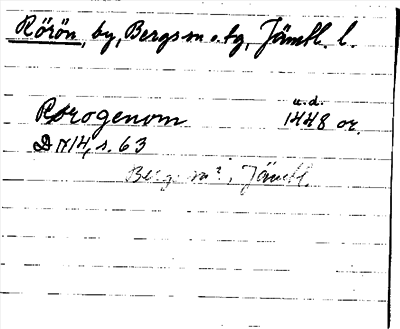 Rörön, by, Bergs sn o. tg, Jämtl. l.
u.d.
Rørogenom 1448 or.
DN 14, s. 63
Bergs sn?, Jämtl.